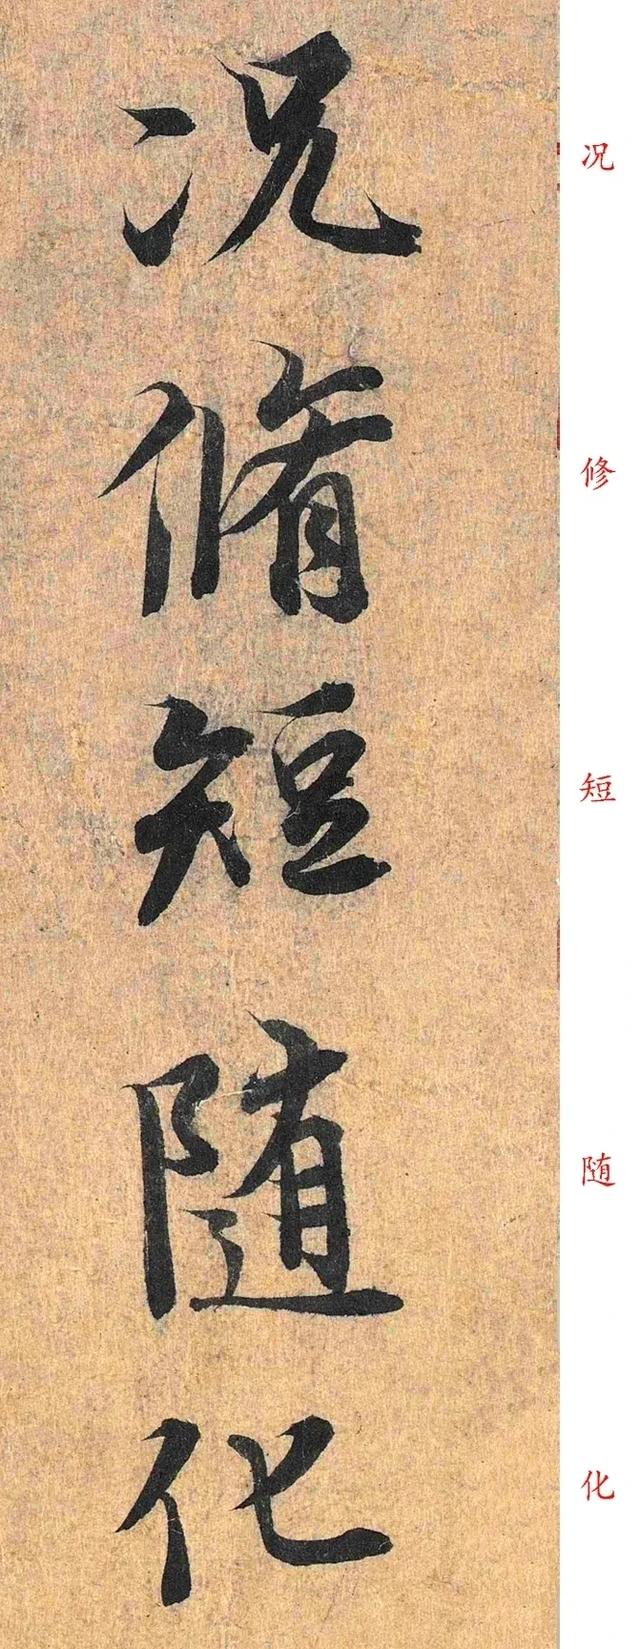 况脩短随化
况
修
短
随
化